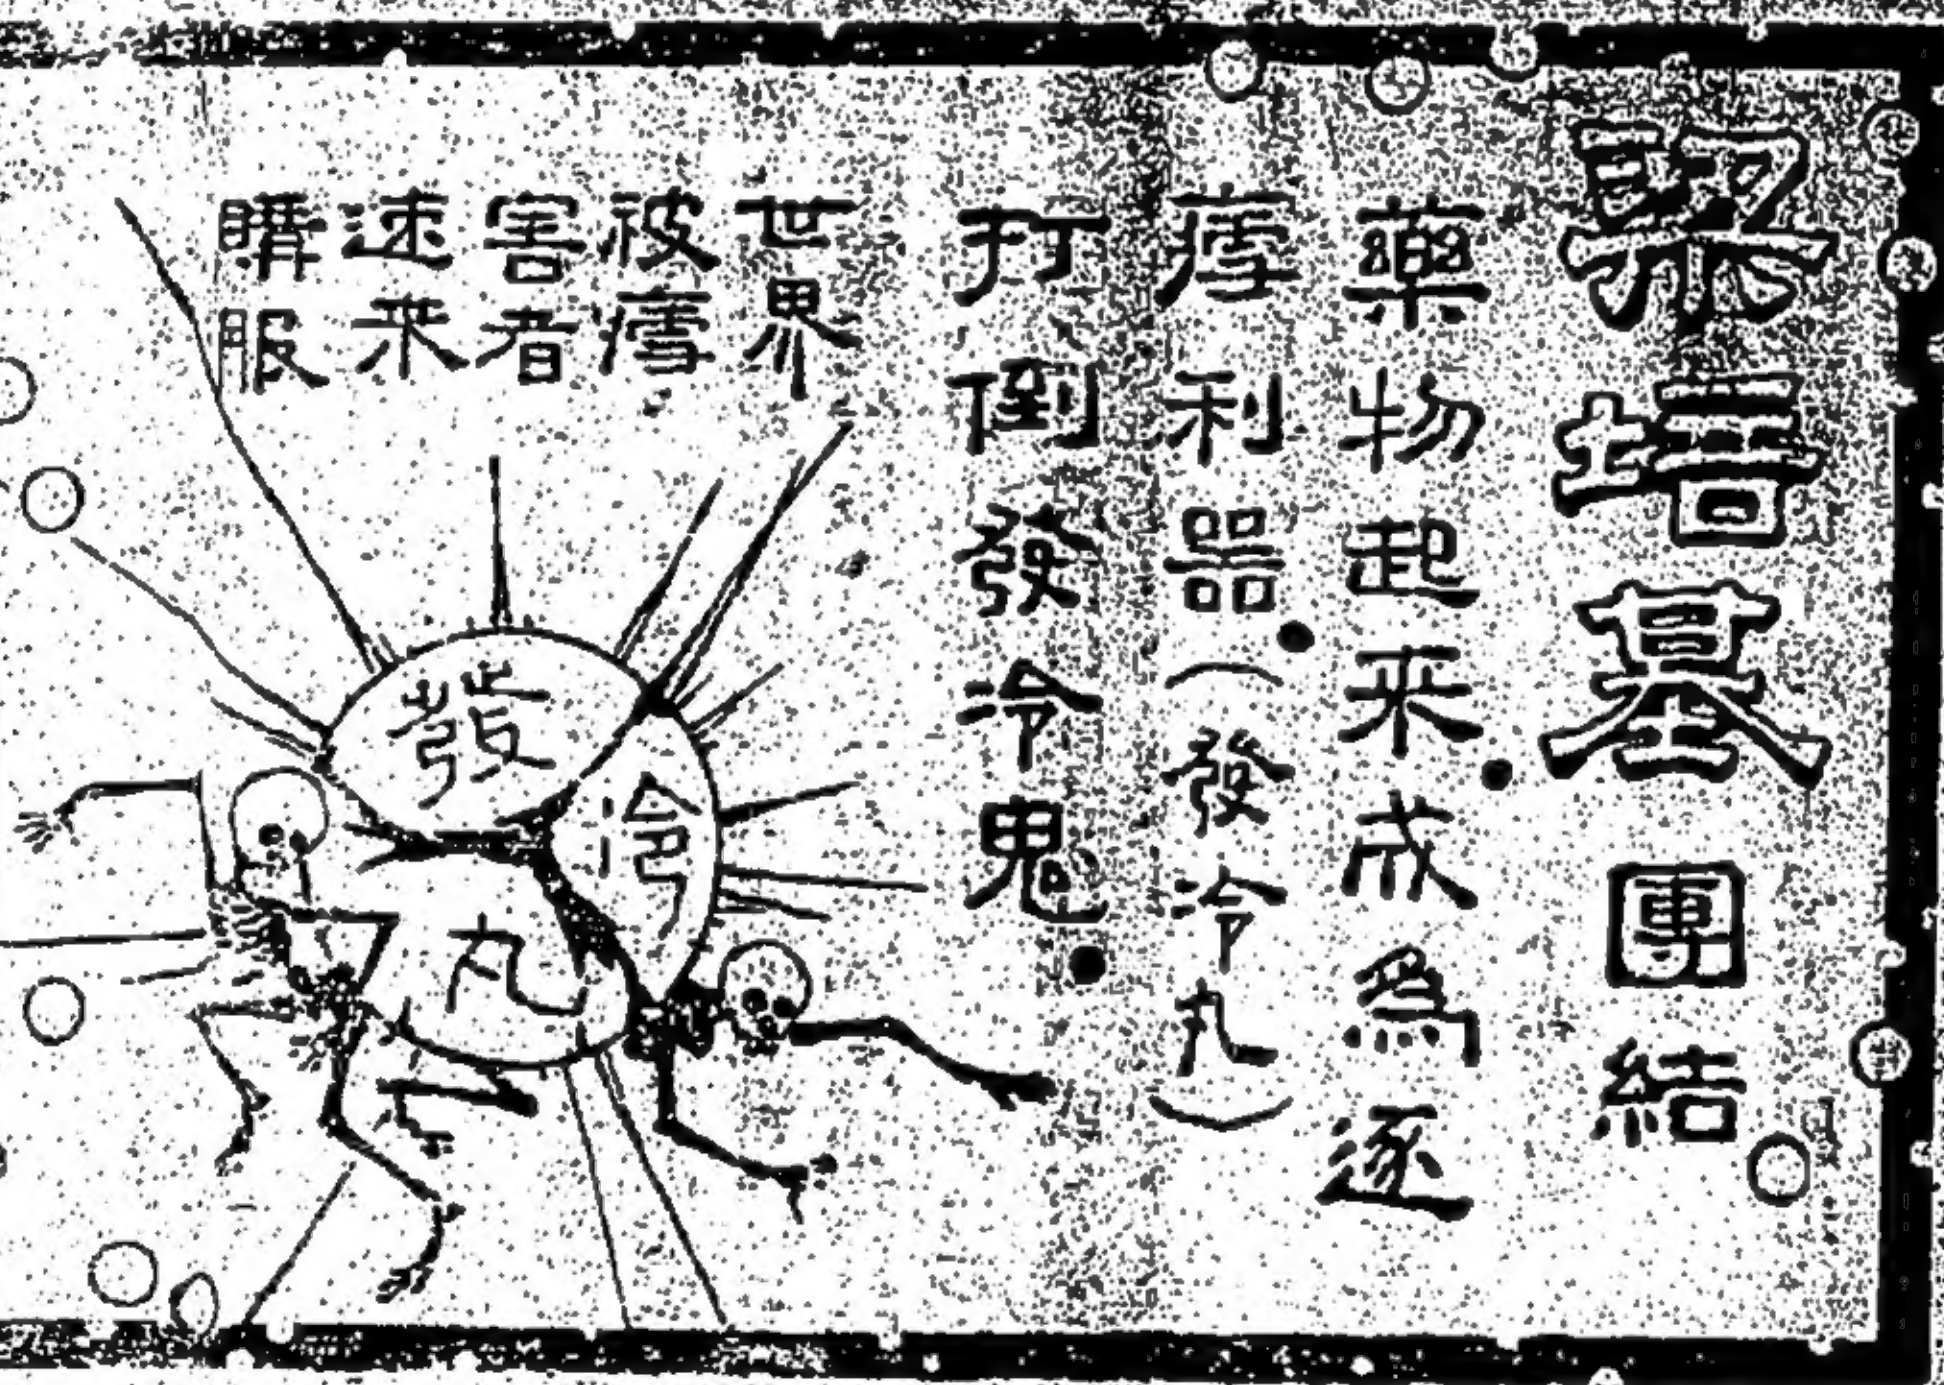 梁培基團結
藥物起来成爲逐
瘧利器（發冷丸）
打倒發冷鬼
世界
被瘧
害者
速来
購服
發
冷
丸